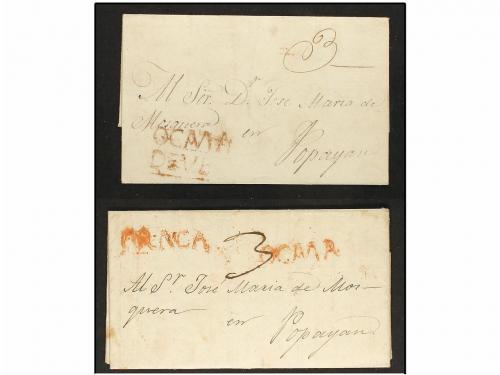 3
Al Sr. Dn. José María de
Mosquera
en
Popayan
OCAÑA
DEVE
FRANCA 3 OCAÑA
Al Sr. José María de Mos-
quera
en
Popayan